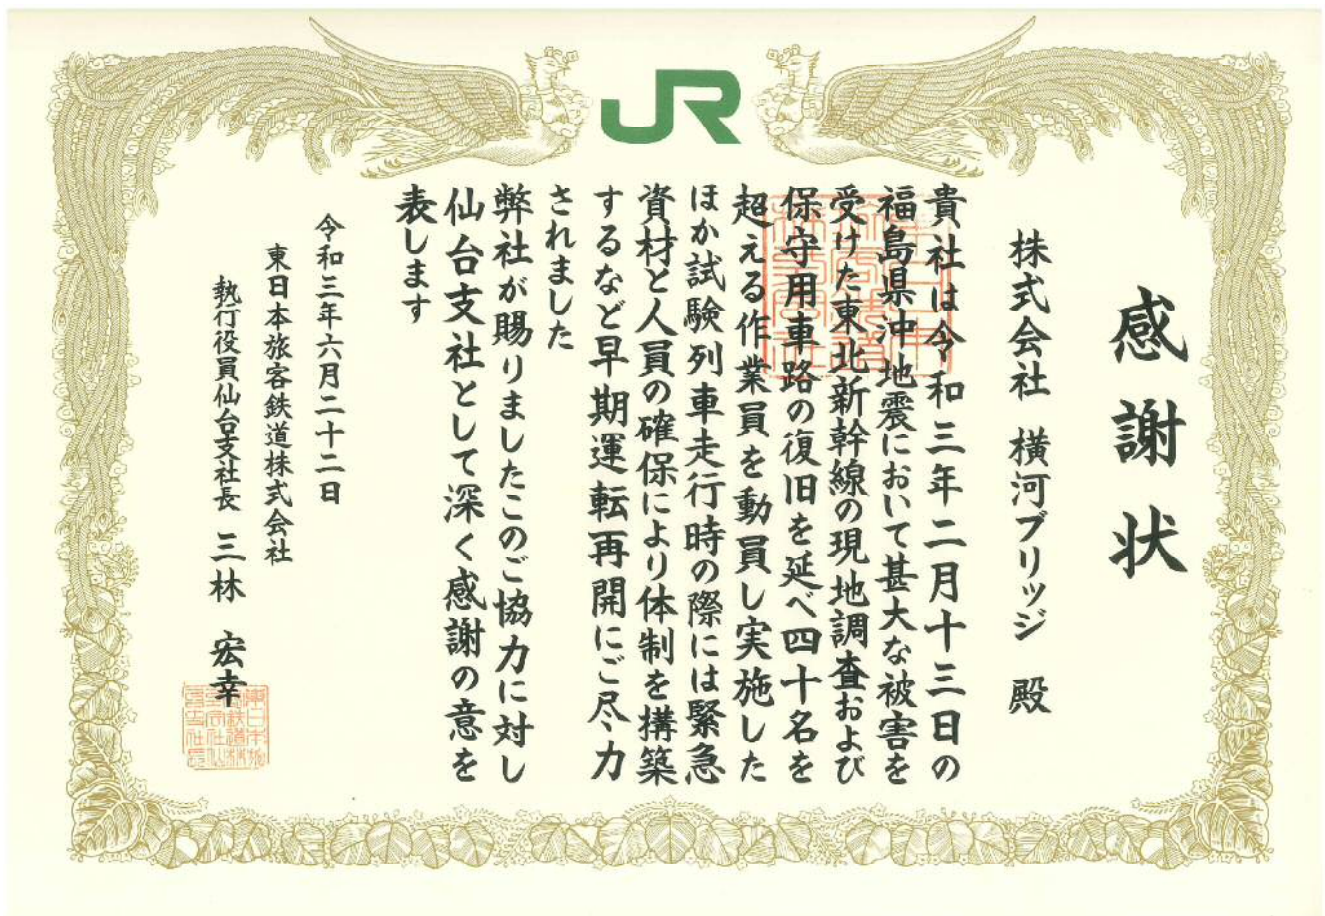 JR
感謝状
株式会社 横河ブリッジ 殿
貴社は令和三年二月十三日の
福島県沖地震において甚大な被害を
受けた東北新幹線の現地調査および
保守用車路の復旧を延べ四十名を
超える作業員を動員し実施した
ほか試験列車走行時の際には緊急
資材と人員の確保により体制を構築
するなど早期運転再開にご尽力
されました
弊社が賜りましたこのご協力に対し
仙台支社として深く感謝の意を
表します
令和三年六月二十二日
東日本旅客鉄道株式会社
執行役員仙台支社長 三林 宏幸